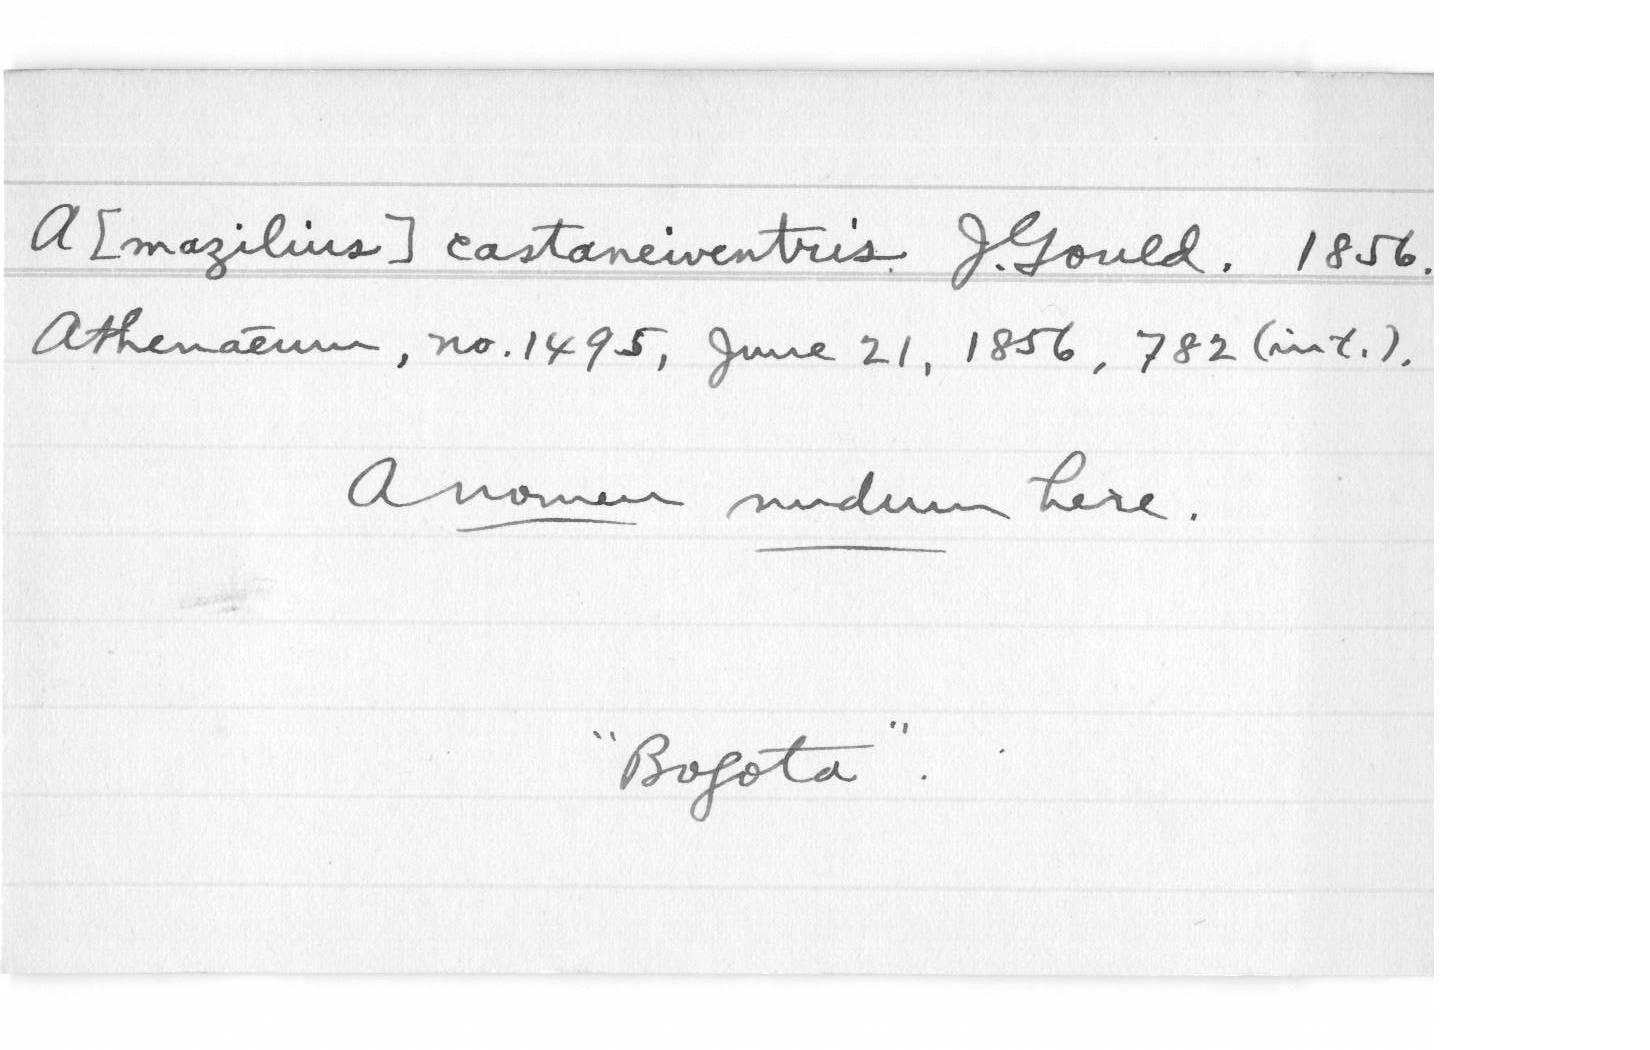 A[mazilius] castaneiventris. J. Gould. 1856.
Athenaeum, no. 1495, June 21, 1856, 782 (int.).
A nomen nudum here.
"Bogota".